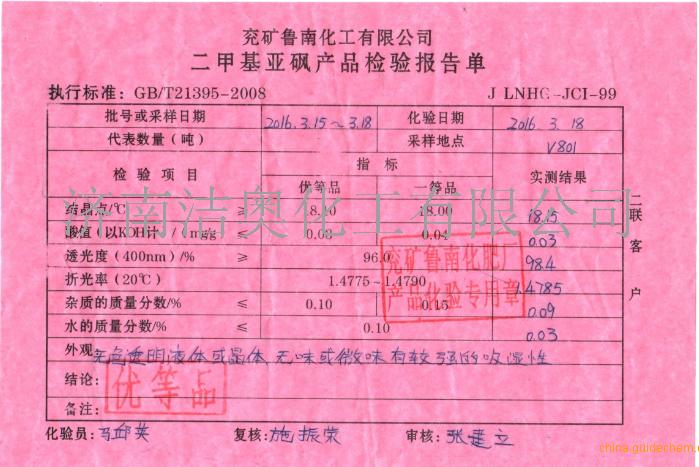 兖矿鲁南化工有限公司
二甲基亚砜产品检验报告单
执行标准：GB/T21395-2008 J LNHG-JCI-99
批号或采样日期 2016.3.15～3.18 化验日期 2016.3.18
代表数量（吨） 采样地点 V801
检验项目 指标 实测结果
优等品 二等品
结晶点/℃ ≥ 18.10 18.00 18.15
酸值（以KOH计）/（mg/g ≤ 0.03 0.04 0.03
透光度（400nm）/% ≥ 96.0 98.4
折光率（20℃） 1.4775～1.4790 1.4785
杂质的质量分数/% ≤ 0.10 0.15 0.09
水的质量分数/% ≤ 0.10 0.03
外观： 无色透明液体或晶体，无味或微味有较强的吸湿性
结论： 优等品
备注：
化验员： 复核：施振荣 审核：张建立
二联客户
兖矿鲁南化肥厂
产品化验专用章
济南洁奥化工有限公司
china.guidechem.com